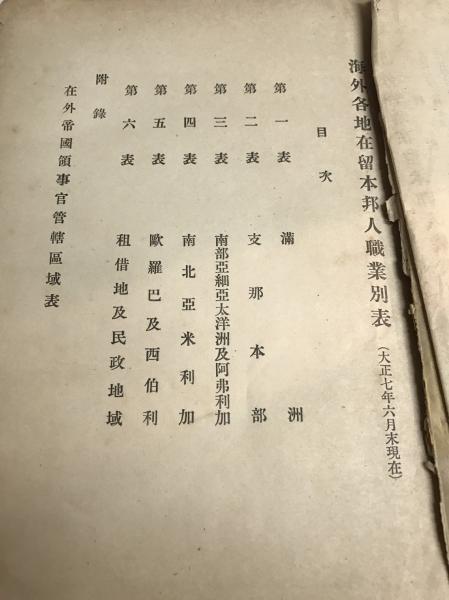 海外各地在留本邦人職業別表（大正七年六月末現在）
目次
第一表 滿洲
第二表 支那本部
第三表 南部亞細亞太洋洲及阿弗利加
第四表 南北亞米利加
第五表 歐羅巴及西伯利
第六表 租借地及民政地域
附錄
在外帝國領事官管轄區域表